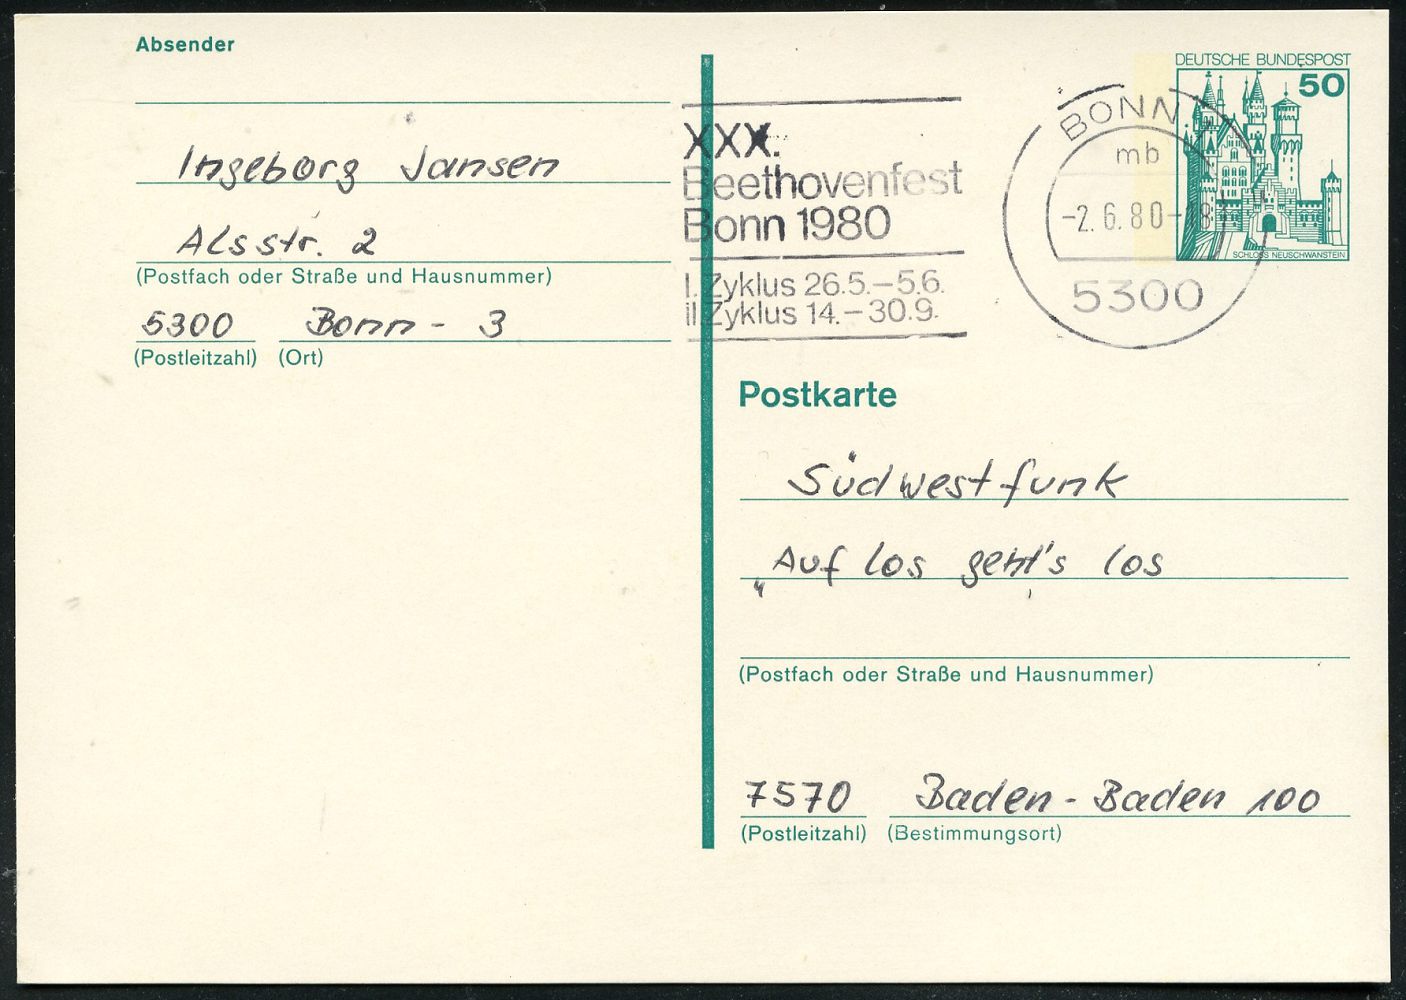 Absender
Ingeborg Jansen
Alsstr. 2
(Postfach oder Straße und Hausnummer)
5300 Bonn - 3
(Postleitzahl) (Ort)
XXX.
Beethovenfest
Bonn 1980
I. Zyklus 26.5.–5.6.
II. Zyklus 14.–30.9.
BONN
mb
-2.6.80-18
5300
DEUTSCHE BUNDESPOST
50
SCHLOSS NEUSCHWANSTEIN
Postkarte
Südwestfunk
„Auf los geht's los
(Postfach oder Straße und Hausnummer)
7570 Baden-Baden 100
(Postleitzahl) (Bestimmungsort)